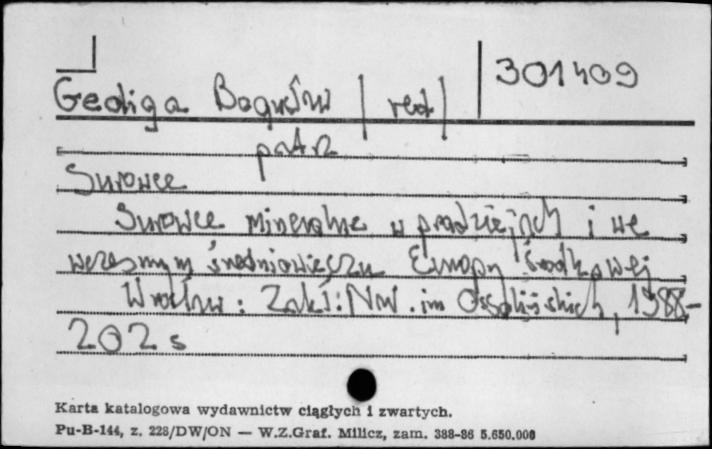 301409
Gediga Bogusław /red/
patrz
Surowce
Surowce mineralne w pradziejach i we
wczesnym średniowieczu Europy środkowej
Wrocław: Zakł. Nar. im Ossolińskich, 1988.-
202 s
Karta katalogowa wydawnictw ciągłych i zwartych.
Pu-B-144, z. 228/DW/ON — W.Z.Graf. Milicz, zam. 388-86 5.650.000